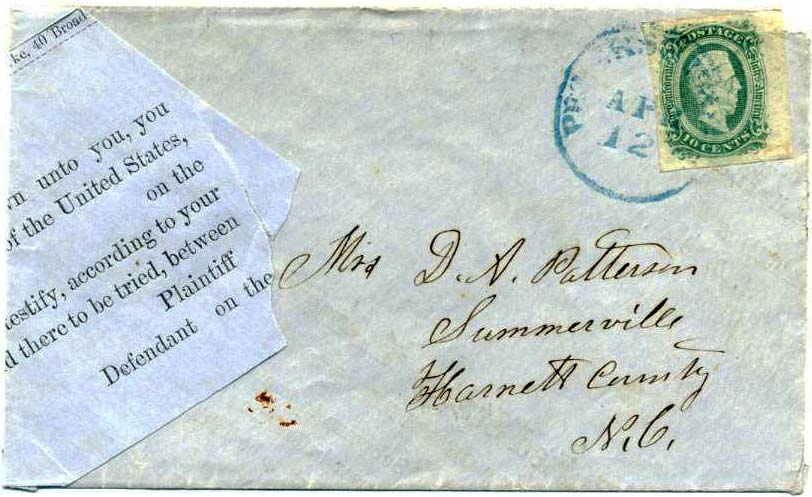 ke, 40 Broad
unto you, you
of the United States,
on the
testify, according to your
there to be tried, between
Plaintiff
Defendant on the
AP
12
POSTAGE
10 CENTS
Mrs D. A. Patterson
Summerville
Harnett County
N.C.